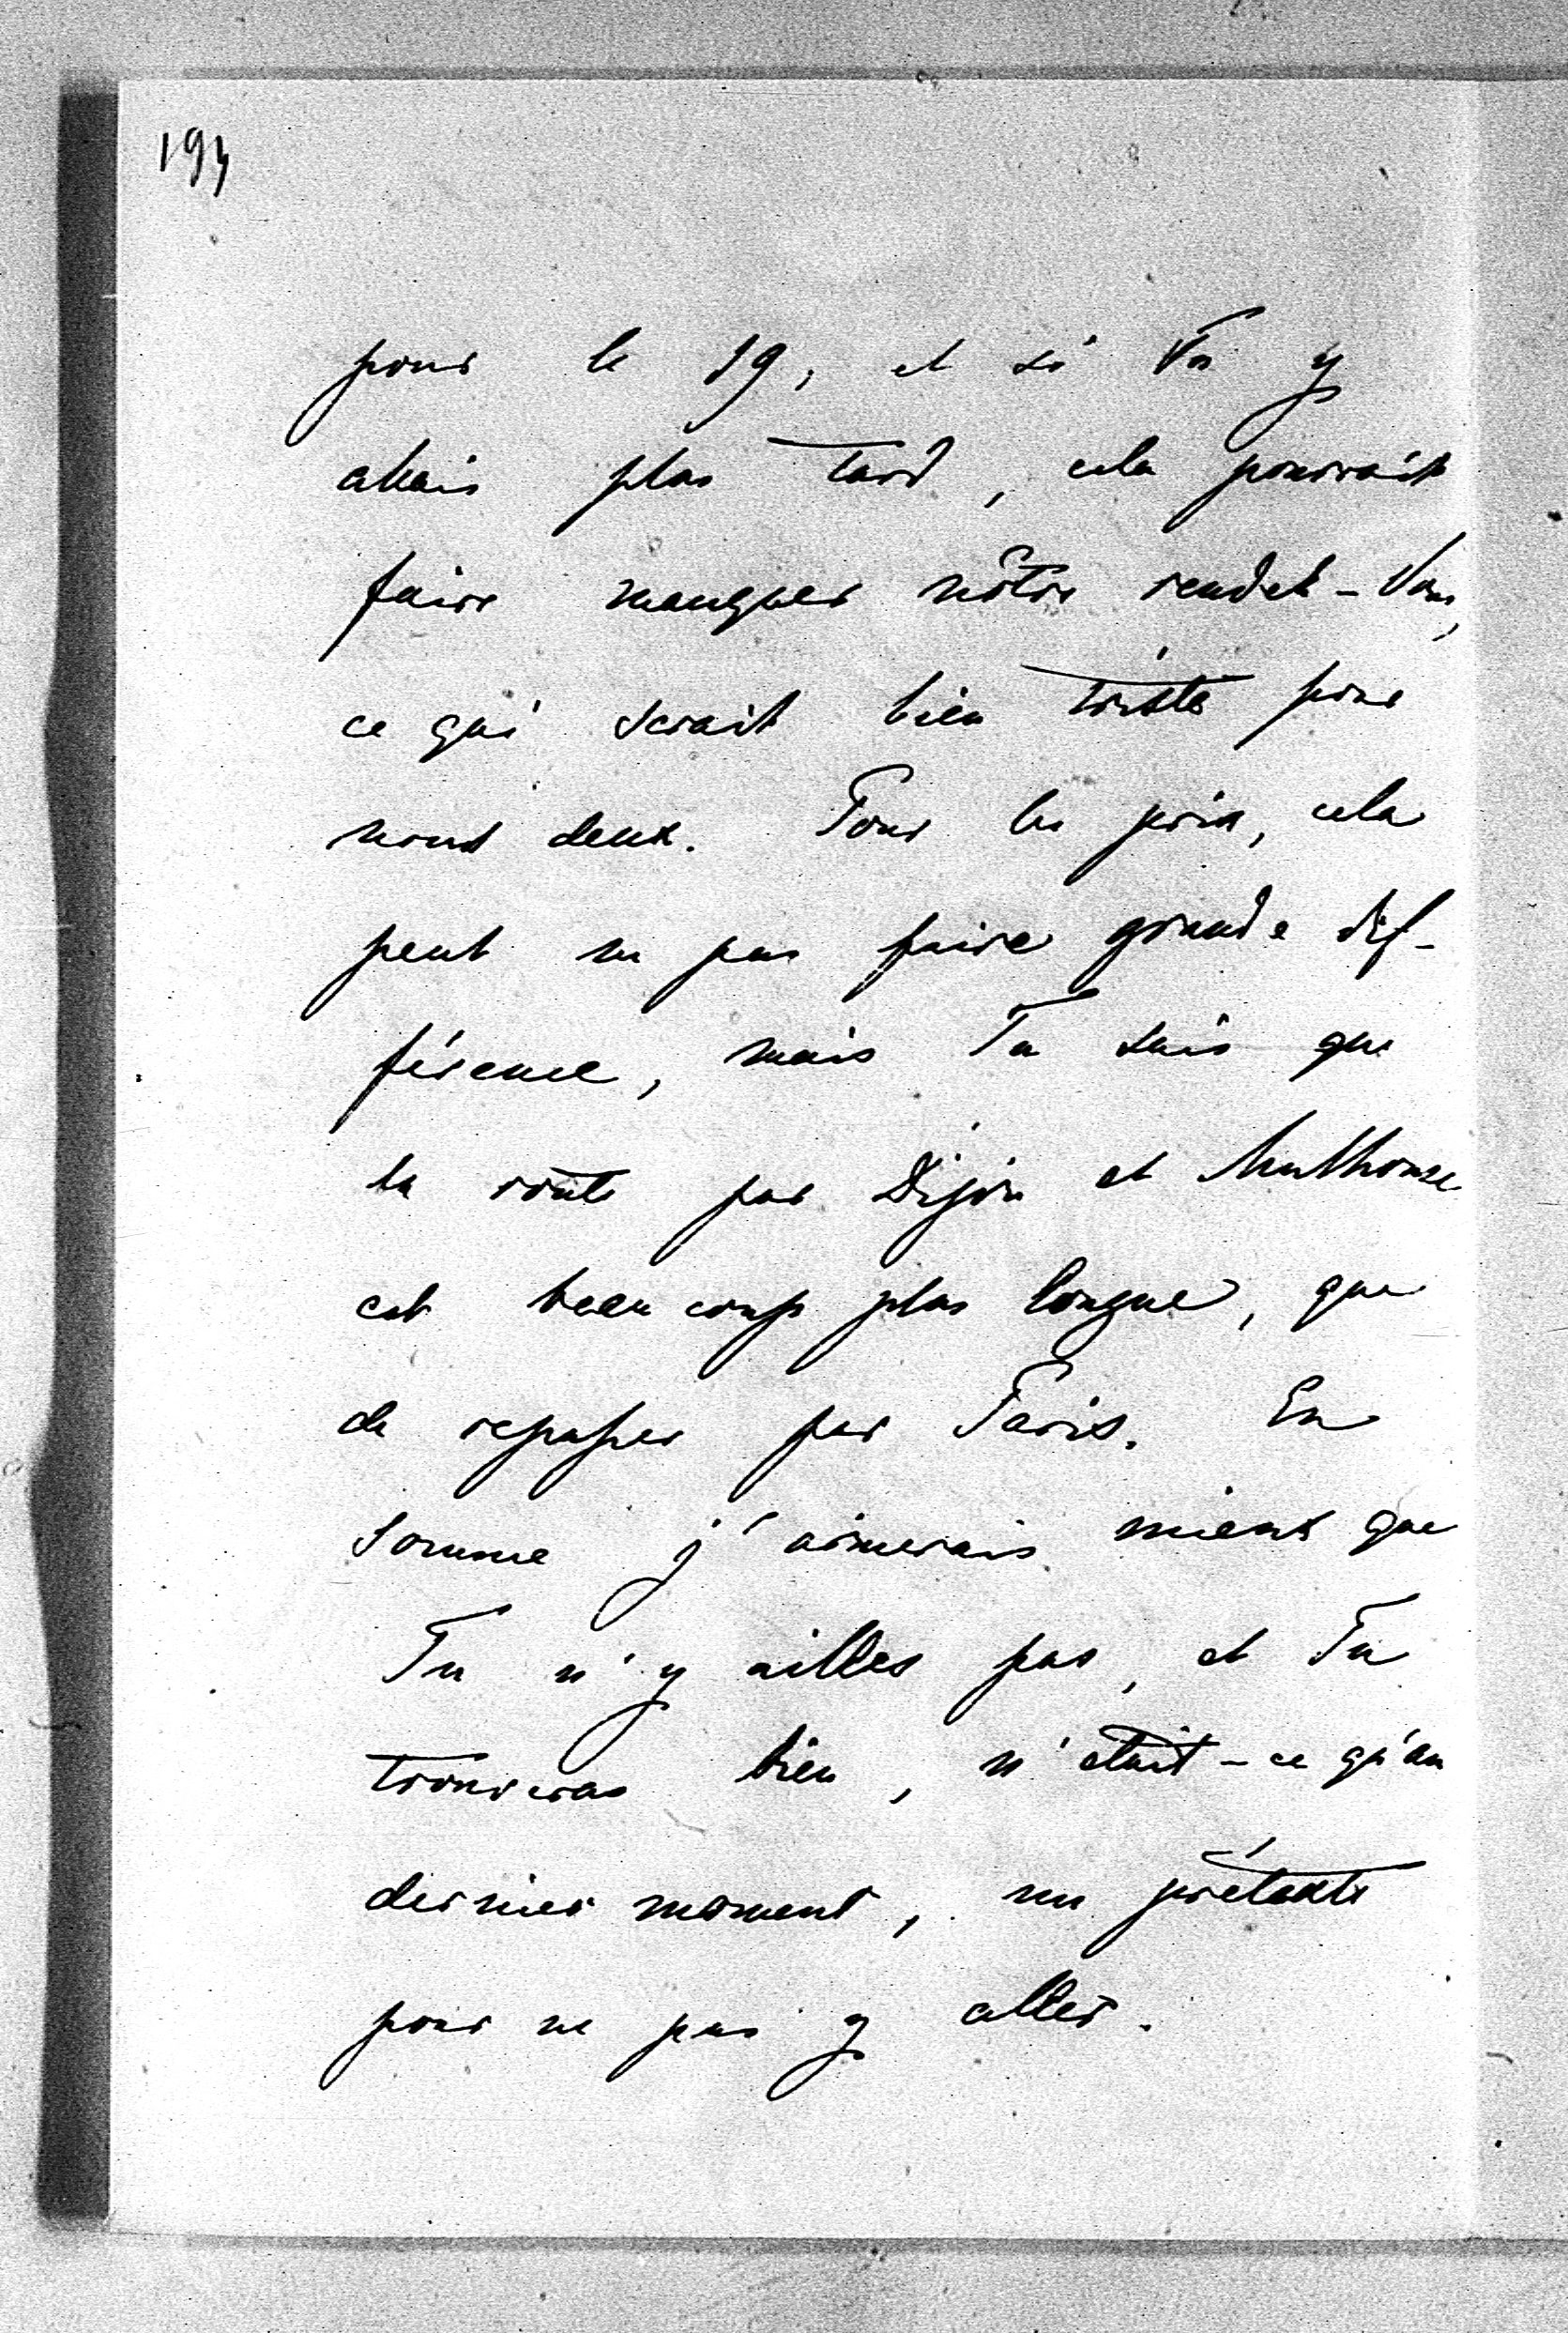 pour le 19, et si Tu y
allais plus tard, cela pourrait
faire manquer nôtre rendet-Vous,
ce qui serait bien triste pour
nous deux. Pour les prix, cela
peut ne pas faire grande dif-
férence, mais Tu sais que
la route par Dijon et Mulhouse
est beaucoup plus longue, que
de repasser par Paris. En
somme j'aimerais mieux que
Tu n'y ailles pas, et Tu
trouveras bien, n'etait-ce qu'au
dernier moment, un prétexte
pour ne pas y aller.